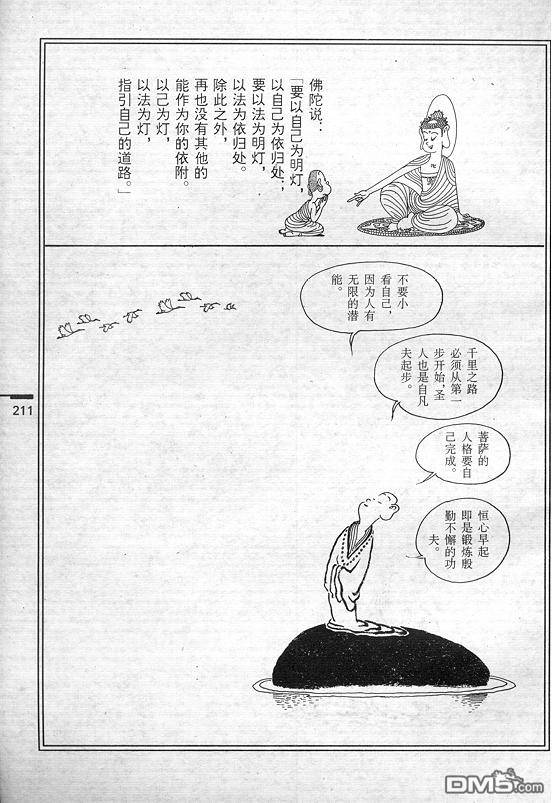 佛陀说：
「要以自己为明灯，
以自己为依归处；
要以法为明灯，
以法为依归处。
除此之外，
再也没有其他的
能作为你的依附。
以己为灯，
以法为灯，
指引自己的道路。」
不要小
看自己，
因为人有
无限的潜
能。
千里之路
必须从第一
步开始，圣
人也是自凡
夫起步。
菩萨的
人格要自
己完成。
恒心早起
即是锻炼殷
勤不懈的功
夫。
211
DM5.com